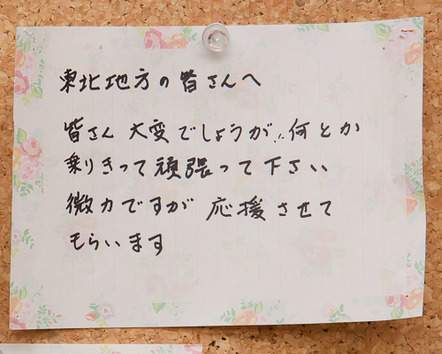 東北地方の皆さんへ
皆さん 大変でしょうが、何とか
乗りきって頑張って下さい
微力ですが 応援させて
もらいます